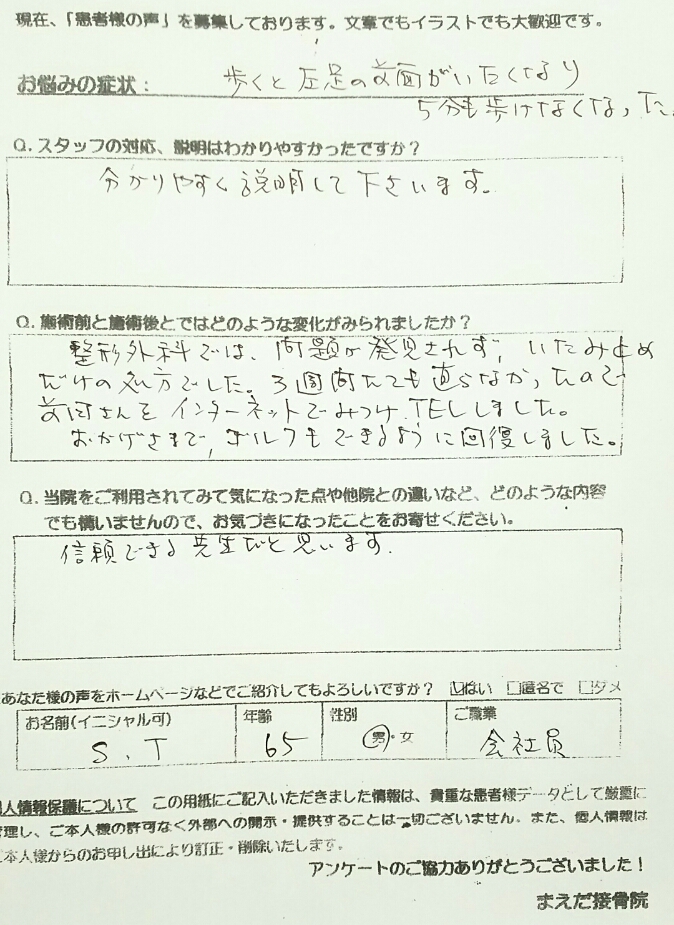 現在、「患者様の声」を募集しております。文章でもイラストでも大歓迎です。
お悩みの症状： 歩くと左足の前面がいたくなり
5分も歩けなくなった。
Q. スタッフの対応、説明はわかりやすかったですか？
分かりやすく説明して下さいます。
Q. 施術前と施術後とではどのような変化がみられましたか？
整形外科では、問題が発見されず、いたみ止め
だけの処方でした。3週間たっても直らなかったので
前田さんをインターネットでみつけTELしました。
おかげさまで、ゴルフもできるように回復しました。
Q. 当院をご利用されてみて気になった点や他院との違いなど、どのような内容
でも構いませんので、お気づきになったことをお寄せください。
信頼できる先生だと思います。
あなた様の声をホームページなどでご紹介してもよろしいですか？ ☑はい □匿名で □ダメ
お名前（イニシャル可） 年齢 性別 ご職業
S.T 65 男・女 会社員
人情報保護について この用紙にご記入いただきました情報は、貴重な患者様データとして厳重に
管理し、ご本人様の許可なく外部への開示・提供することは一切ございません。また、個人情報は
ご本人様からのお申し出により訂正・削除いたします。
アンケートのご協力ありがとうございました！
まえだ接骨院